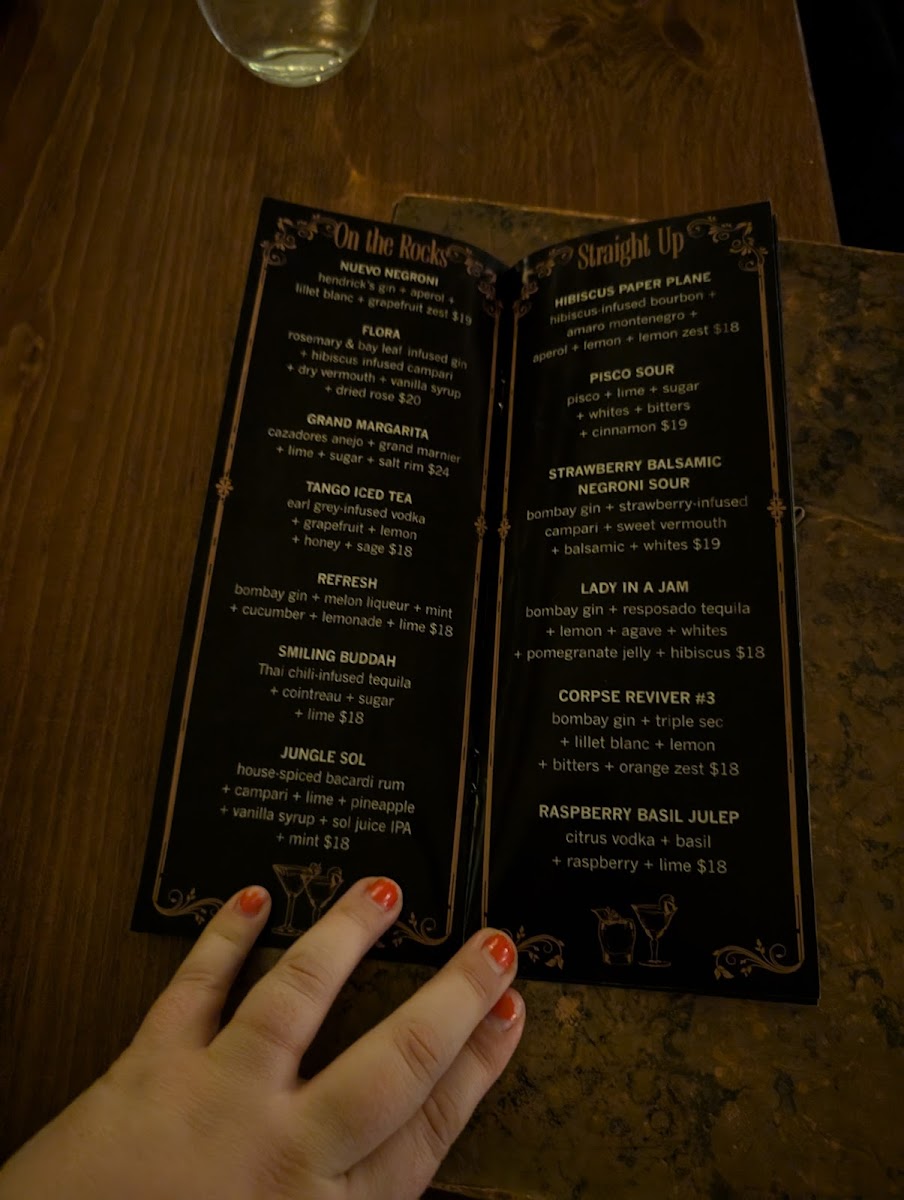 On the Rocks
NUEVO NEGRONI
hendrick's gin + aperol +
lillet blanc + grapefruit zest $19
FLORA
rosemary & bay leaf infused gin
+ hibiscus infused campari
+ dry vermouth + vanilla syrup
+ dried rose $20
GRAND MARGARITA
cazadores anejo + grand marnier
+ lime + sugar + salt rim $24
TANGO ICED TEA
earl grey-infused vodka
+ grapefruit + lemon
+ honey + sage $18
REFRESH
bombay gin + melon liqueur + mint
+ cucumber + lemonade + lime $18
SMILING BUDDAH
Thai chili-infused tequila
+ cointreau + sugar
+ lime $18
JUNGLE SOL
house-spiced bacardi rum
+ campari + lime + pineapple
+ vanilla syrup + sol juice IPA
+ mint $18
Straight Up
HIBISCUS PAPER PLANE
hibiscus-infused bourbon +
amaro montenegro +
aperol + lemon + lemon zest $18
PISCO SOUR
pisco + lime + sugar
+ whites + bitters
+ cinnamon $19
STRAWBERRY BALSAMIC
NEGRONI SOUR
bombay gin + strawberry-infused
campari + sweet vermouth
+ balsamic + whites $19
LADY IN A JAM
bombay gin + resposado tequila
+ lemon + agave + whites
+ pomegranate jelly + hibiscus $18
CORPSE REVIVER #3
bombay gin + triple sec
+ lillet blanc + lemon
+ bitters + orange zest $18
RASPBERRY BASIL JULEP
citrus vodka + basil
+ raspberry + lime $18